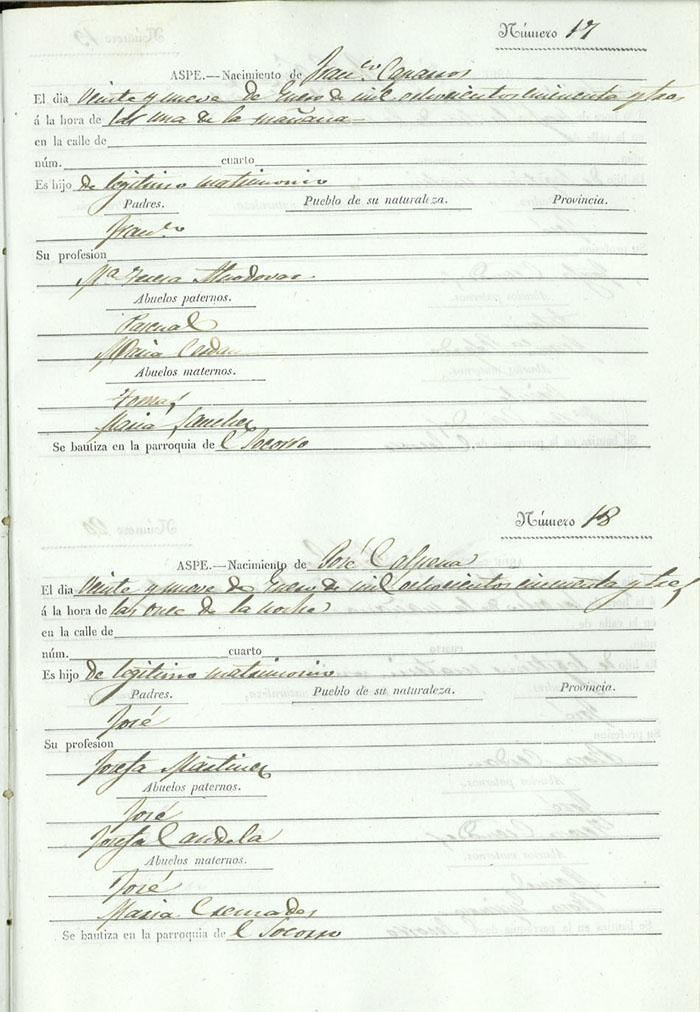 Número 17
ASPE.—Nacimiento de Fran.co Caparros
El dia veinte y nueve de Enero de mil ochocientos cincuenta y tres
á la hora de las una de la mañana
en la calle de
núm. cuarto
Es hijo de legitimo matrimonio
Padres. Pueblo de su naturaleza. Provincia.
Fran.co
Su profesion
M.a Teresa Almodovar
Abuelos paternos.
Pascual
Maria Cerdan
Abuelos maternos.
Tomas
Maria Sanchez
Se bautiza en la parroquia de el Socorro
Número 18
ASPE.—Nacimiento de José Calpena
El dia veinte y nueve de Enero de mil ochocientos cincuenta y tres
á la hora de las once de la noche
en la calle de
núm. cuarto
Es hijo de legitimo matrimonio
Padres. Pueblo de su naturaleza. Provincia.
José
Su profesion
Josefa Martinez
Abuelos paternos.
José
Josefa Candela
Abuelos maternos.
José
Maria Cremades
Se bautiza en la parroquia de el Socorro